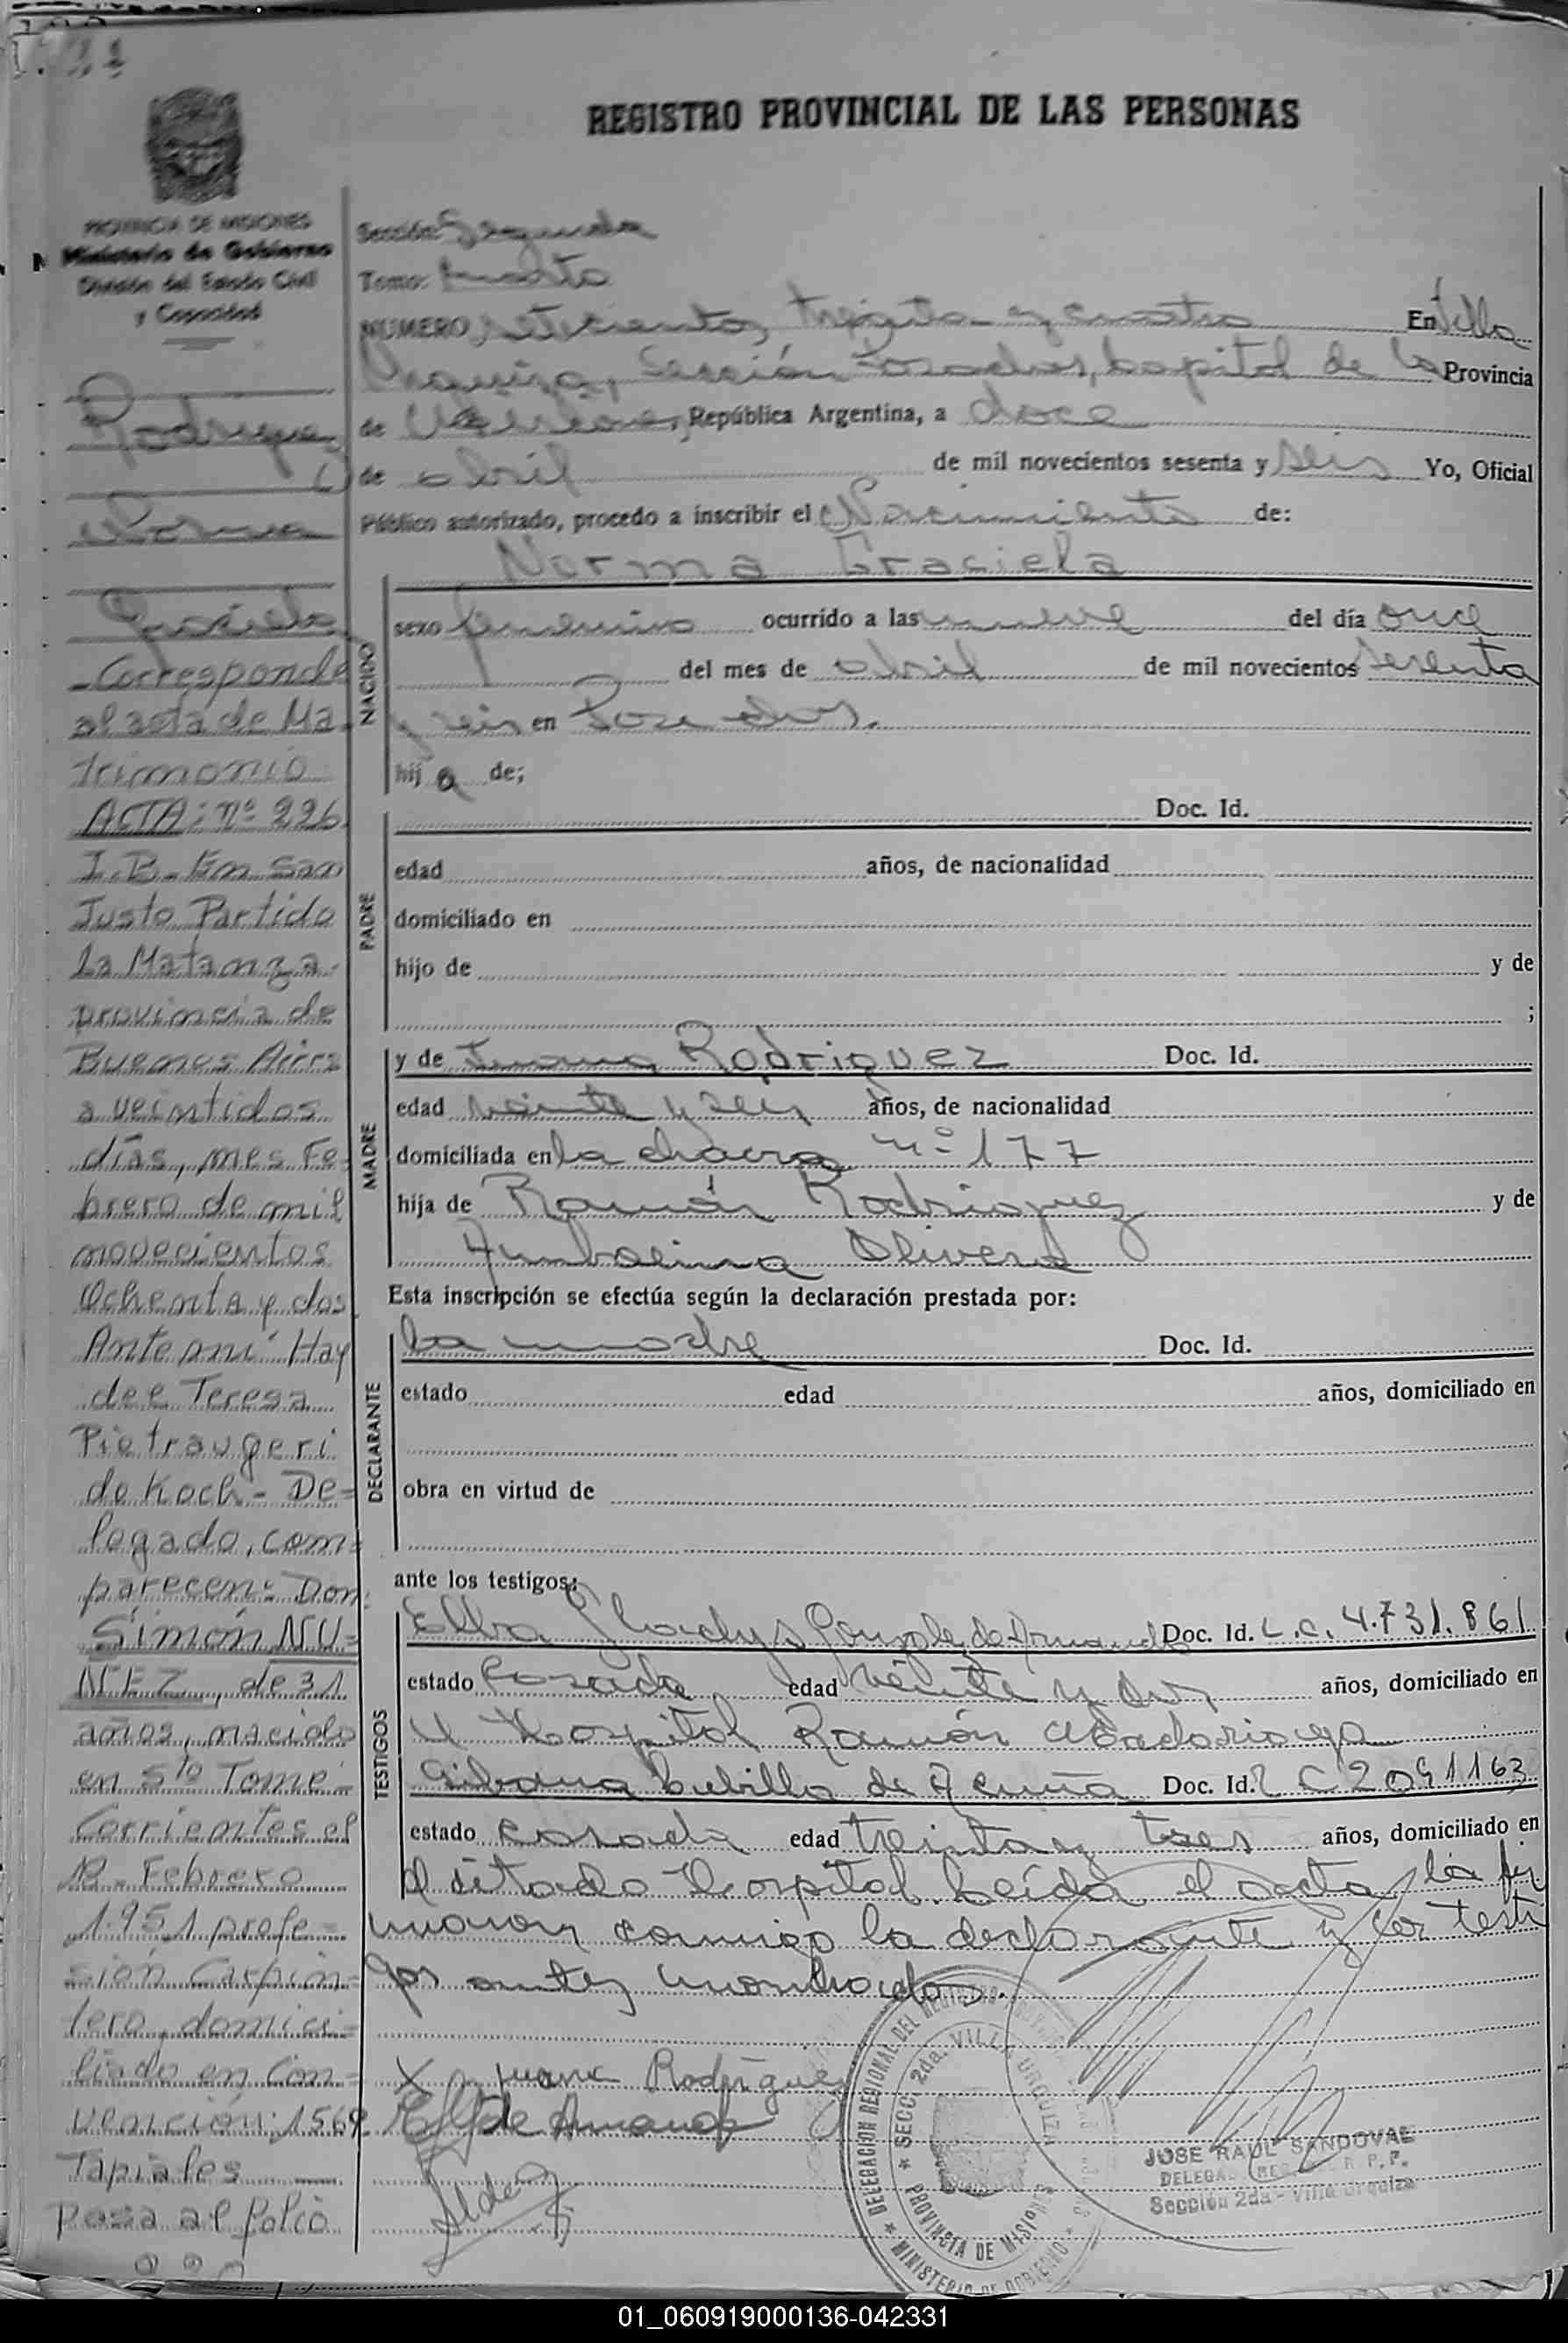 REGISTRO PROVINCIAL DE LAS PERSONAS
PROVINCIA DE MISIONES
Ministerio de Gobierno
División del Estado Civil
y Capacidad
Rodriguez
Norma
Graciela
-Corresponde
al acta de Ma-
trimonio
ACTA: nº 226
I.B- En San
Justo Partido
La Matanza-
provincia de
Buenos Aires
a veintidos
días, mes Fe-
brero de mil
novecientos
Ochenta y dos
Ante mi Hay
dee Teresa
Pietraugeri
de Koch - De=
legado, com=
parecen: Don:
Simón NU=
NEZ, de 31
años, nacido
en Sto Tomé-
Corrientes el
Febrero
1.951 profe=
sión Carpin=
tero, domici=
liado en Con=
1569
Tapiales
Pasa al folio
Sección: Segunda
Tomo: Cuarto
NUMERO setecientos treinta y cuatro En Villa
Urquiza, Sección Posadas, Capital de la Provincia
de Misiones, República Argentina, a doce
de abril de mil novecientos sesenta y seis Yo, Oficial
Público autorizado, procedo a inscribir el Nacimiento de:
Norma Graciela
NACIDO
sexo femenino ocurrido a las nueve del día once
del mes de abril de mil novecientos sesenta
y seis en Posadas.
hij a de;
PADRE
Doc. Id.
edad años, de nacionalidad
domiciliado en
hijo de y de
;
MADRE
y de Juana Rodriguez Doc. Id.
edad veinte y seis años, de nacionalidad
domiciliada en la chacra nº 177
hija de Ramón Rodriguez y de
Olivera
Esta inscripción se efectúa según la declaración prestada por:
DECLARANTE
La madre Doc. Id.
estado edad años, domiciliado en
obra en virtud de
ante los testigos:
TESTIGOS
Elba Gladys Gonzalez de Armando Doc. Id. L.C. 4.731.861
estado Casada edad veinte y dos años, domiciliado en
el Hospital Ramón Madariaga
Cubilla de Acuña Doc. Id. L C 2091163
estado casada edad treinta y tres años, domiciliado en
el citado Hospital. Leída el acta, la fir
maron conmigo la declarante y los testi
gos antes mencionados.
X Juana Rodríguez
E G de Armando
DELEGACION REGIONAL DEL REGISTRO PROVINCIAL
SECC. 2da. VILLA URQUIZA
PROVINCIA DE MISIONES
MINISTERIO DE GOBIERNO
JOSE RAUL SANDOVAL
R. P. P.
Sección 2da - Villa Urquiza
01_060919000136-042331